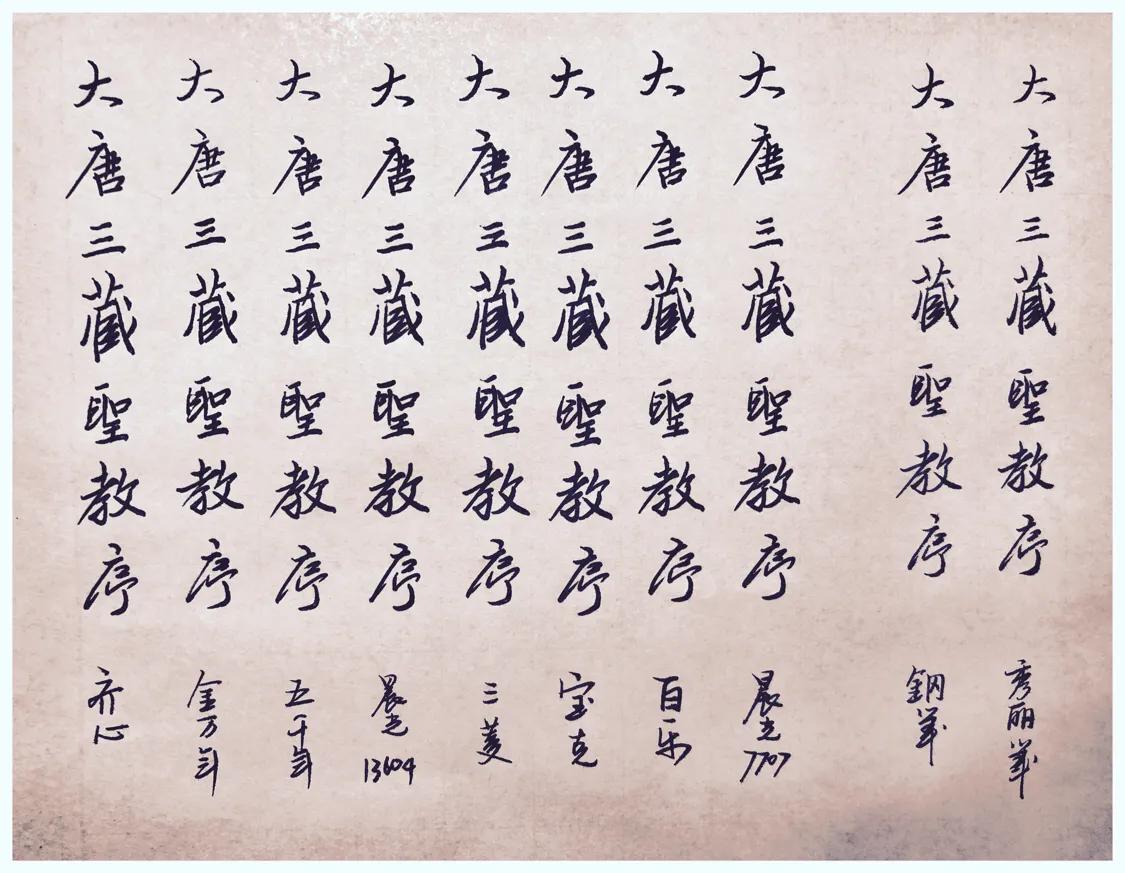 大唐三藏聖教序 秀丽笔
大唐三藏聖教序 鋼笔
大唐三藏聖教序 晨光7707
大唐三藏聖教序 百乐
大唐三藏聖教序 宝克
大唐三藏聖教序 三菱
大唐三藏聖教序 晨光13604
大唐三藏聖教序 五千年
大唐三藏聖教序 金万年
大唐三藏聖教序 齐心